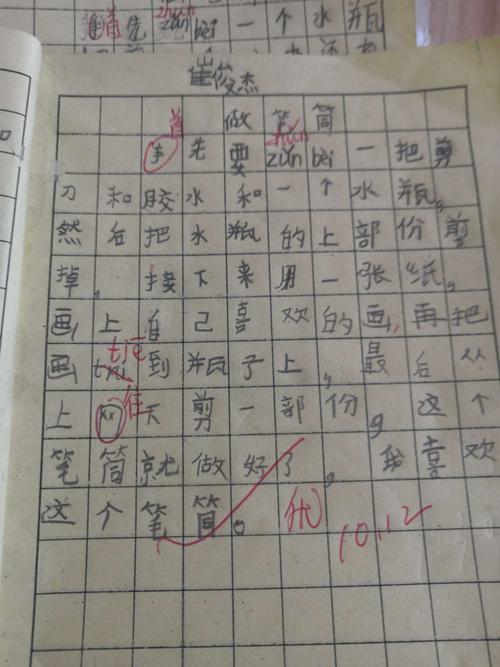 首先 zǔn bèi 一个水瓶
崔俊杰
做笔筒
首 zhǔn
手先要 zǔn bèi 一把剪
刀和胶水和一个水瓶。
然后把水瓶的上部份剪
掉,接下来用一张纸,
画上自己喜欢的画,再把
tiē
画 txi 到瓶子上,最后从
往
上 xx 下剪一部份,这个
笔筒就做好了,我喜欢
这个笔筒。 优 10.12